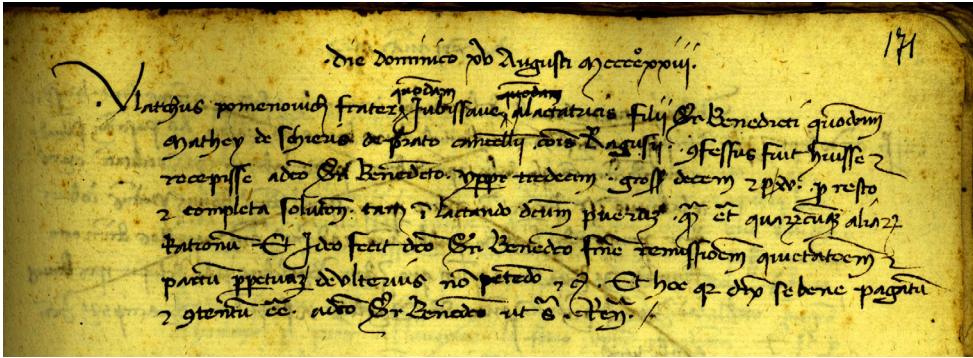 171
die dominico xv Augusti Mccccxxiii.
quondam quondam
Vlatchus pomenovich frater Jubissave alactatricis filii Ser Benedicti quondam
Mathey de Schieris de prato cancellarii cois Ragusii. 9fessus fuit habuisse et
recepisse a dco Ser Benedicto. ypperos tredecim. gross decem et p xv. p resto
et completa soluton. tam i lactando dcum pueru qua et quarucuq aliar
Rationu Et Ideo fecit dco Ser Benedco fine remissioem quietatoem et
pactu ppetuu de ulterius no petedo et c. Et hoc qr dix se bene pagatu
et 9tentu ee a dco Ser Benedco ut s. Ren.